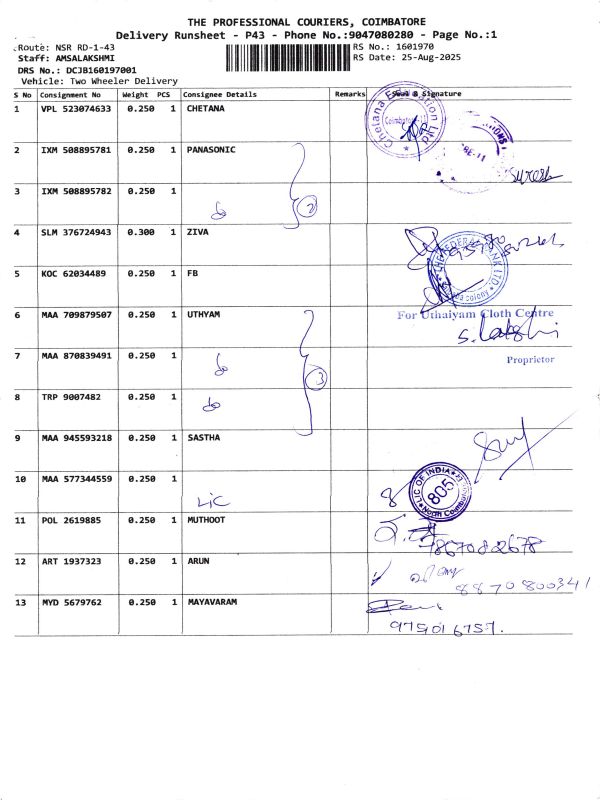 THE PROFESSIONAL COURIERS, COIMBATORE
Delivery Runsheet - P43 - Phone No.:9047080280 - Page No.:1
Route: NSR RD-1-43
RS No.: 1601970
Staff: AMSALAKSHMI
RS Date: 25-Aug-2025
DRS No.: DCJB160197001
Vehicle: Two Wheeler Delivery
S No Consignment No Weight PCS Consignee Details Remarks Seal & Signature
1 VPL 523074633 0.250 1 CHETANA
Chetana Education Ltd
Coimbatore-11
2 IXM 508895781 0.250 1 PANASONIC
Suresh
3 IXM 508895782 0.250 1 do 2
4 SLM 376724943 0.300 1 ZIVA
5 KOC 62034489 0.250 1 FB
THE FEDERAL BANK LTD.
colony
6 MAA 709879507 0.250 1 UTHYAM
For Uthaiyam Cloth Centre
S. Lakshmi
7 MAA 870839491 0.250 1 do 3
Proprietor
8 TRP 9007482 0.250 1 do
9 MAA 945593218 0.250 1 SASTHA
10 MAA 577344559 0.250 1 LIC
LIC OF INDIA
805
11 POL 2619885 0.250 1 MUTHOOT
7867082678
12 ART 1937323 0.250 1 ARUN
8870800341
13 MYD 5679762 0.250 1 MAYAVARAM
975016757.